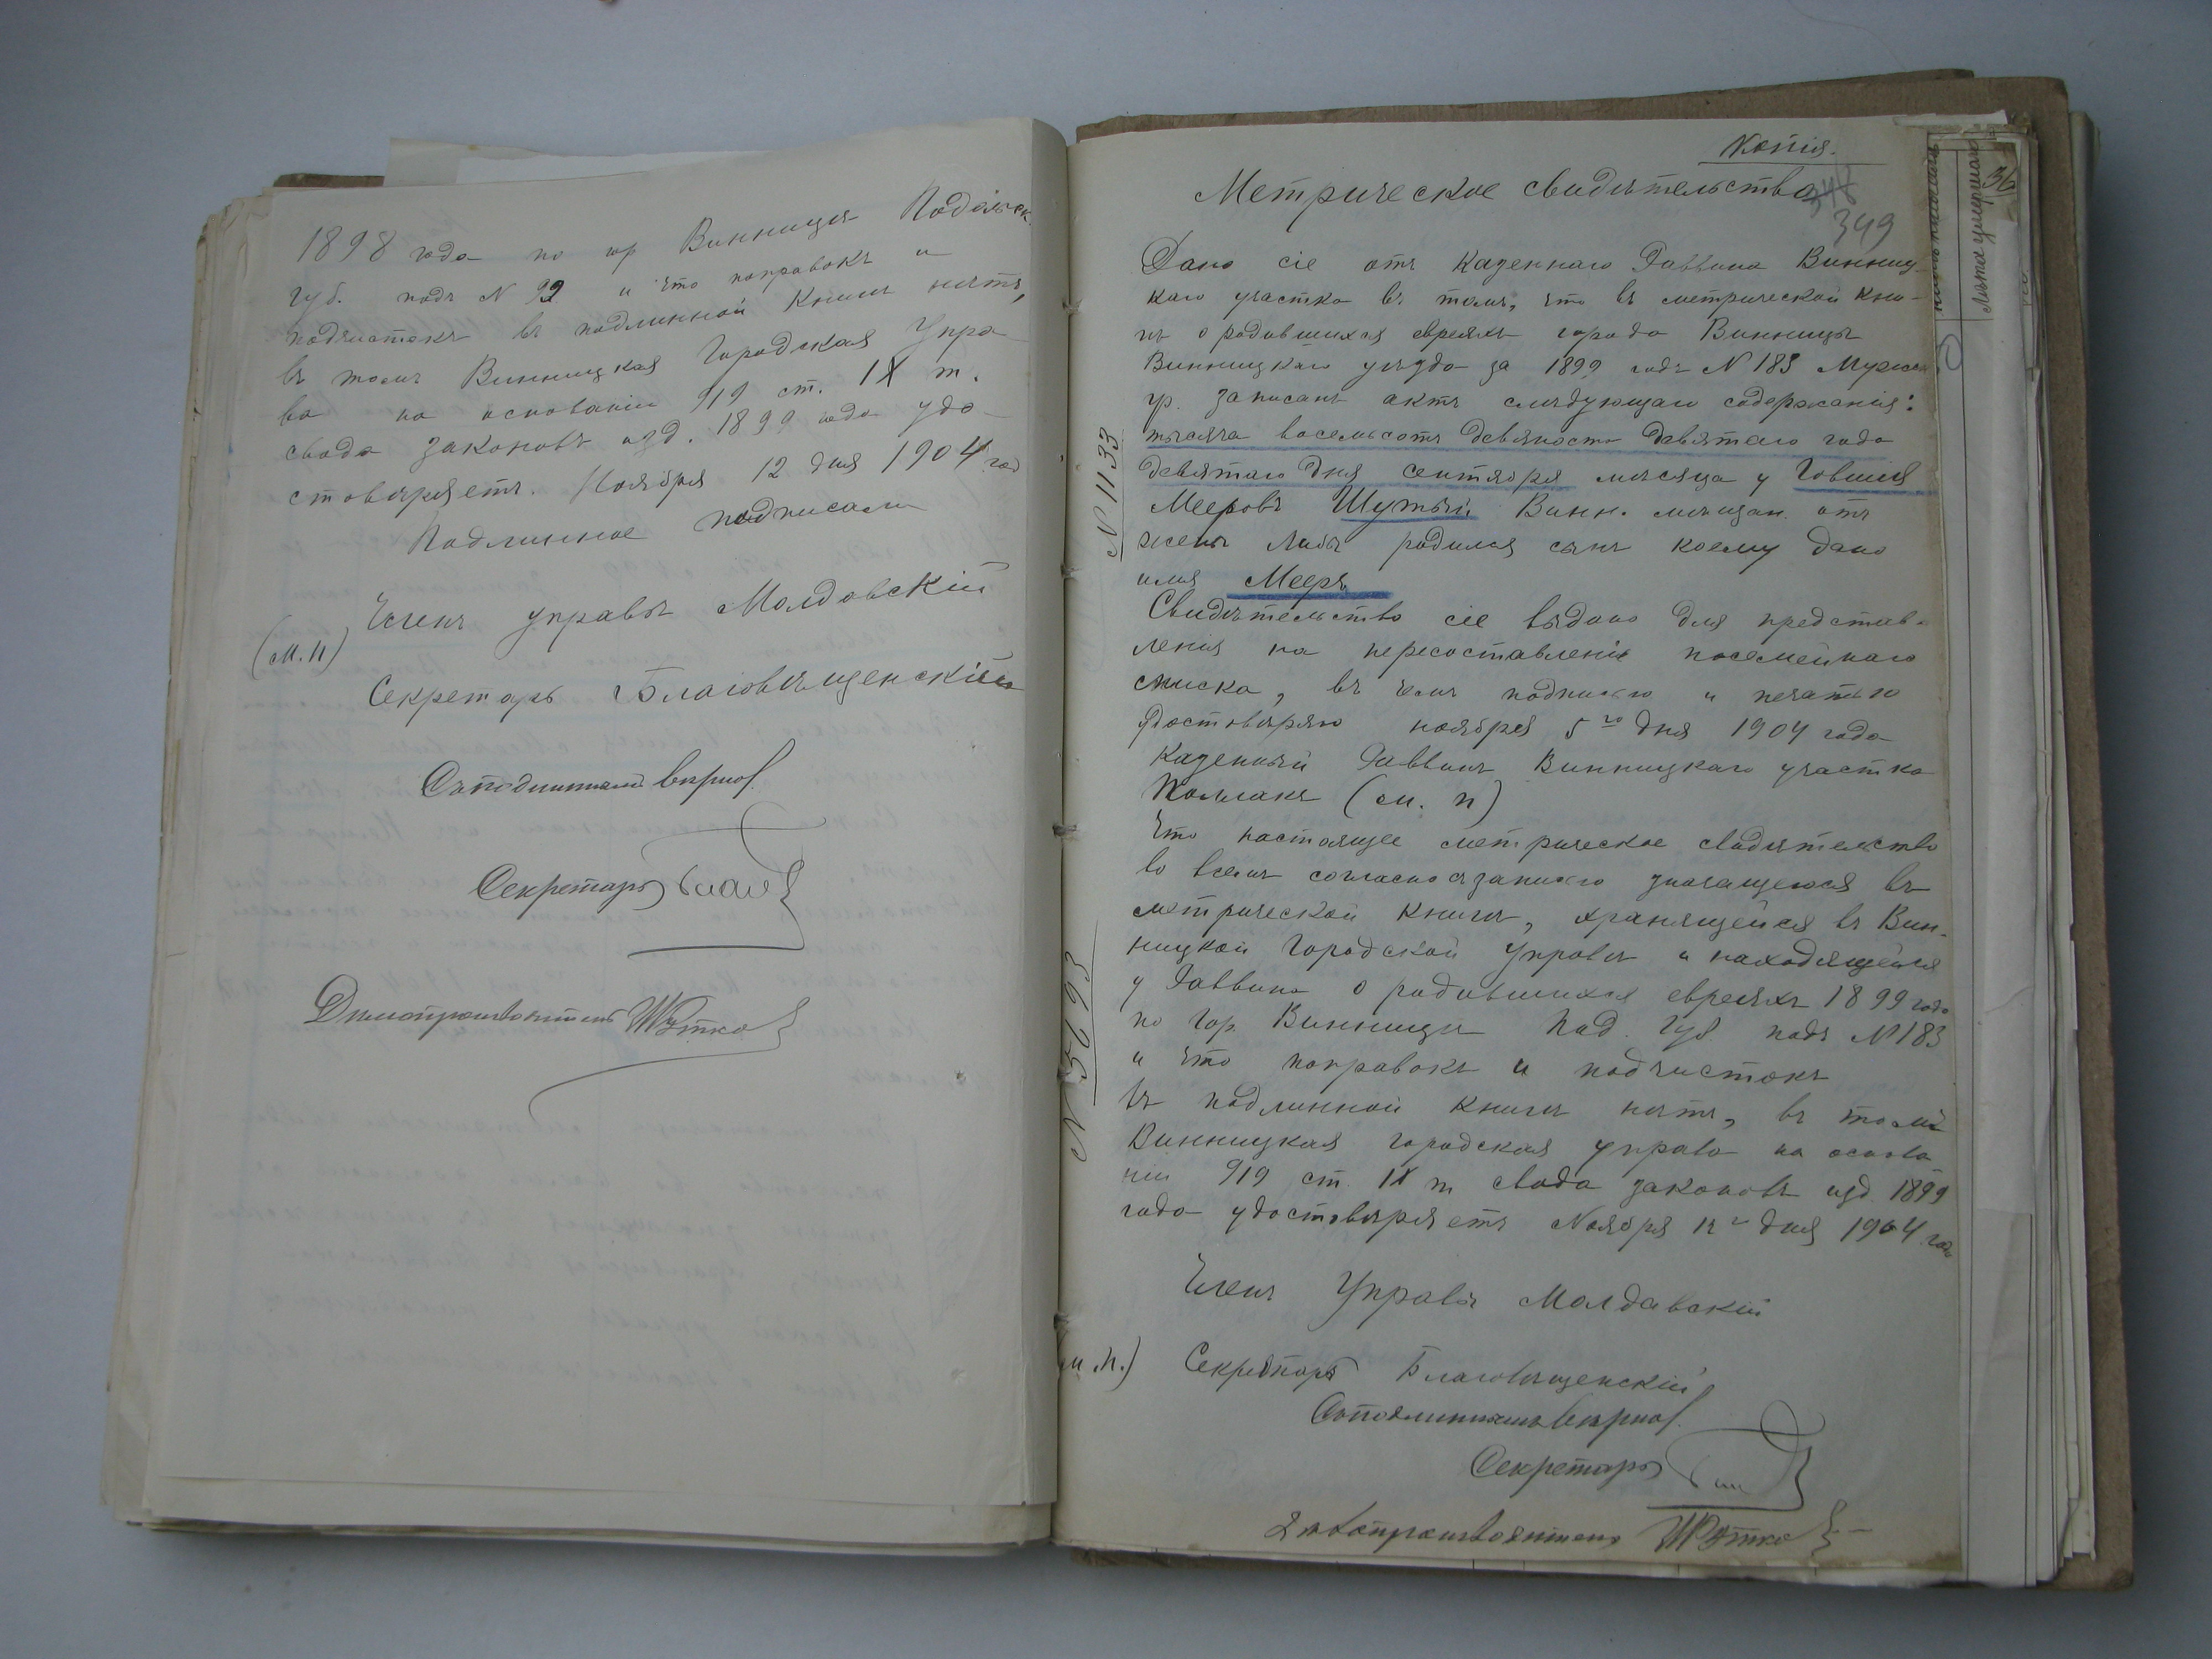 1898 года по гор Винницѣ Подольск.
губ. подъ N 92 и что поправокъ и
подчистокъ въ подлинной книгѣ нѣтъ,
въ томъ Винницкая Городская Упра
ва на основаніи 919 ст. IX т.
свода законовъ изд. 1899 года удо
стовѣряетъ. Ноября 12 дня 1904 год
Подлинное подписали
Членъ управы Молдовскій
(М. П)
Секретарь Благовѣщенскій
Съ подлиннымъ вѣрно
Секретарь
Дѣлопроизводитель
Копія.
Метрическое свидѣтельство
348
349
Дано сіе отъ Казеннаго Раввина Винниц-
каго участка въ томъ, что въ метрической кни-
гѣ о родившихся евреяхъ города Винницы
Винницкаго уѣзда за 1899 годъ N 183 Мужск
гр. записанъ актъ слѣдующаго содержанія:
тысяча восемьсотъ девяносто девятаго года
девятаго дня сентября мѣсяца у Говшія
Мееровъ Шутый Винн. мѣщан. отъ
жены Либы родился сынъ коему дано
имя Мееръ
Свидѣтельство сіе выдано для представ-
ленія на пересоставленіе посемейнаго
списка, въ чемъ подписью и печатью
удостовѣряю ноября 5го дня 1904 года
Казенный Раввинъ Винницкаго участка
(М. П)
N 1133
Что настоящее метрическое свидѣтельство
во всемъ согласно съ записью значащеюся въ
метрической книгѣ, хранящейся въ Вин-
ницкой Городской Управѣ и находящейся
у Раввина о родившихся евреяхъ 1899 года
по гор. Винницѣ Под. Губ. подъ N 183
и что поправокъ и подчистокъ
въ подлинной книгѣ нѣтъ, въ томъ
Винницкая городская управа на основа
ніи 919 ст. IX т свода законовъ изд. 1899
года удостовѣряетъ Ноября 12го дня 1904 года
N 5693
Членъ Управы Молдавскій
М. П.) Секретарь Благовѣщенскій
Съ подлиннымъ вѣрно
Секретарь
Дѣлопроизводитель
Лѣта умершаго
36